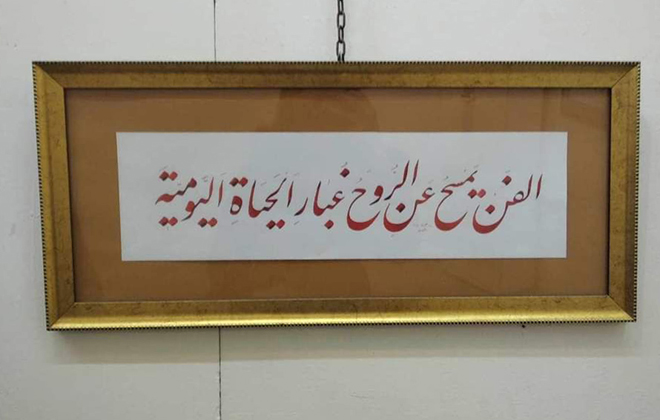 الفن يمسح عن الروح غبار الحياة اليومية